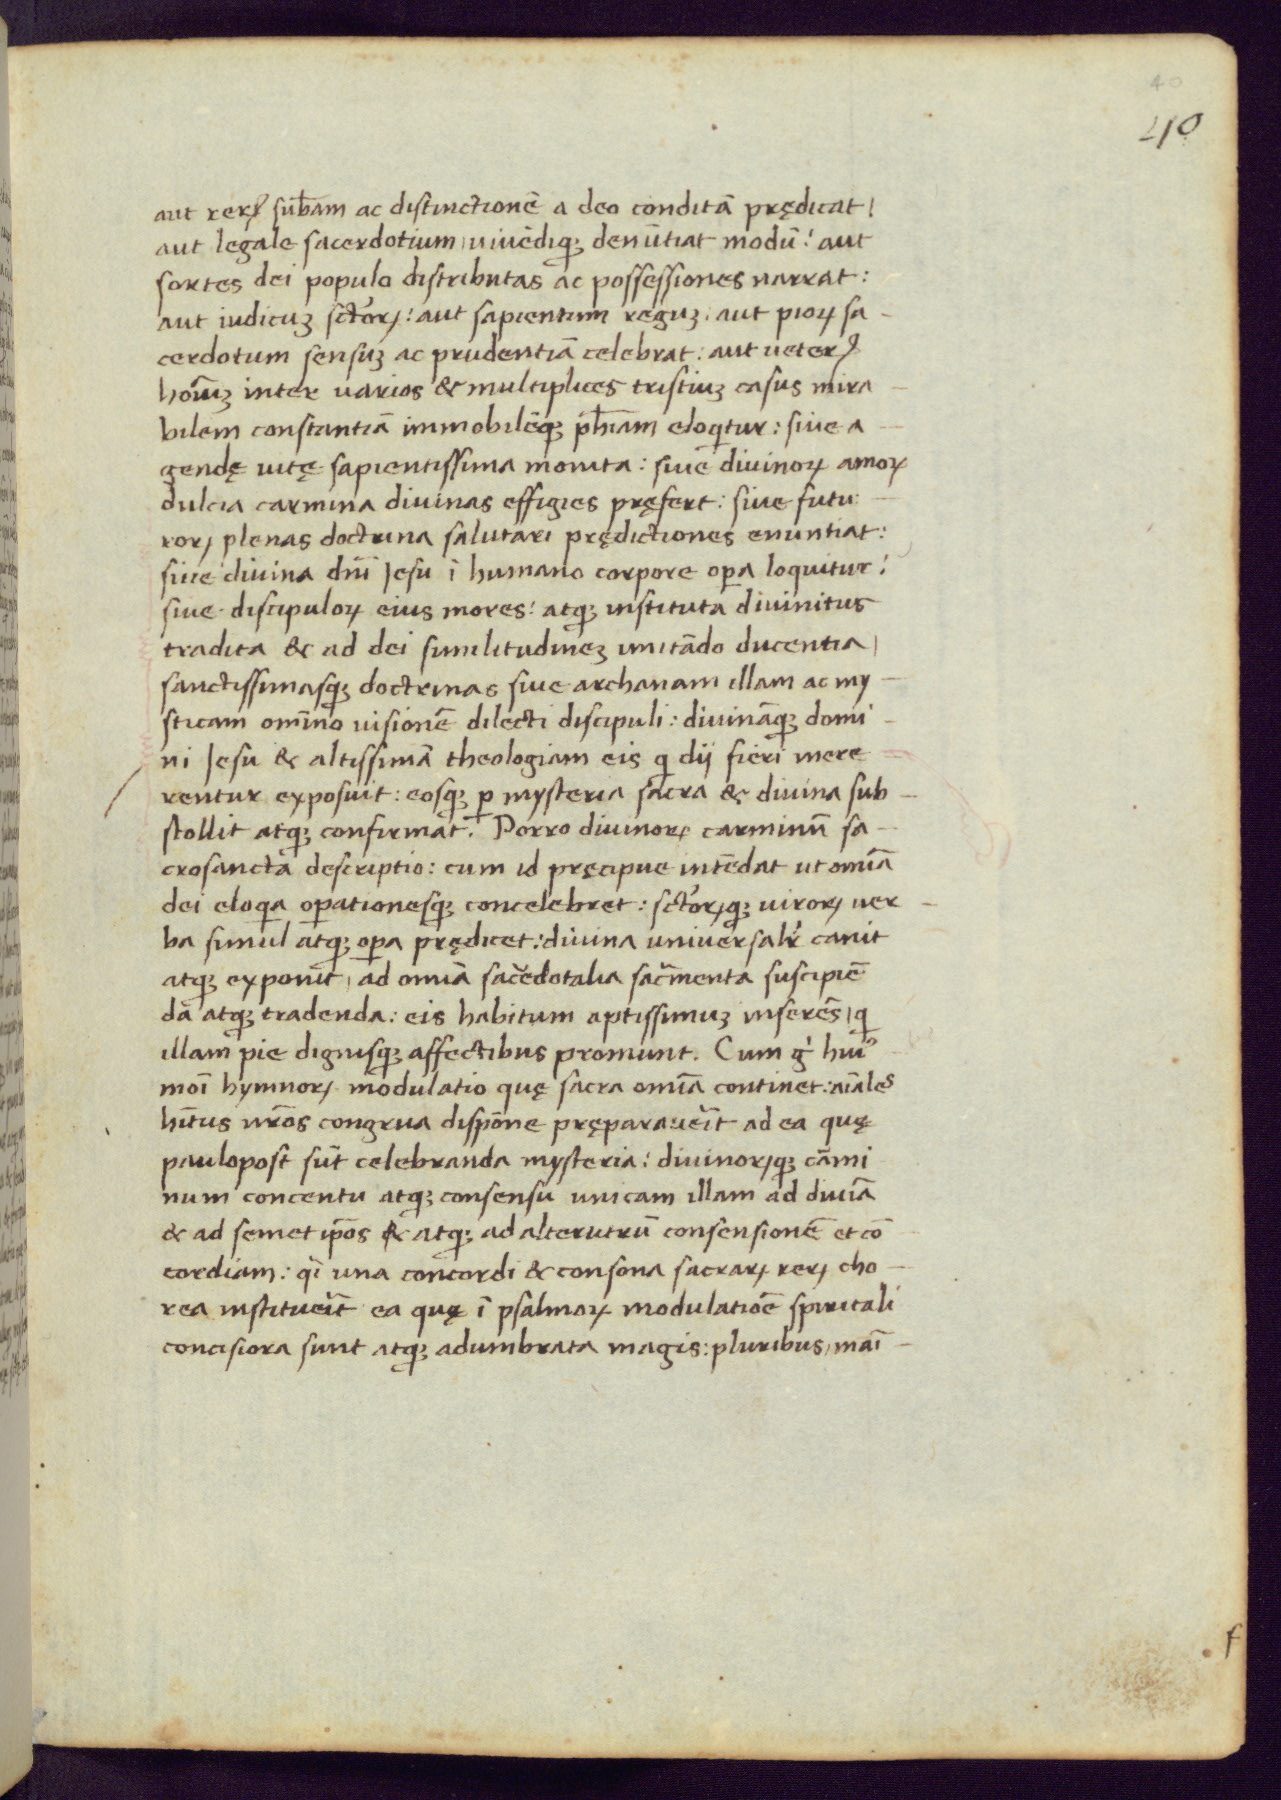 40
40
aut rerꝝ sub̄am ac distinctionē a deo conditā prędicat /
aut legale sacerdotium / uiuēdiqꝫ denūtiat modū! aut
sortes dei populo distributas ac possessiones narrat:
aut iudicuꝫ sctōrꝝ! aut sapientum reguꝫ. aut piorꝝ sa-
cerdotum sensuꝫ ac prudentiā celebrat: aut ueterꝝ
hoīuꝫ inter uarios & multiplices tristiuꝫ casus mira-
bilem constantiā immobilēqꝫ ph̄iam eloqitur: siue a-
gendę uitę sapientissima monita: siue diuinorꝝ amorꝝ
dulcia carmina diuinas effigies pręfert: siue futu-
rorꝝ plenas doctrina salutari prędictiones enuntiat:
siue diuina dn̄i Jesu ī humano corpore oꝑa loquitur!
siue discipulorꝝ eius mores! atqꝫ instituta diuinitus
tradita & ad dei similitudineꝫ imitādo ducentia /
sanctissimasqꝫ doctrinas siue archanam illam ac my-
sticam omīno uisionē dilecti discipuli: diuināqꝫ domi-
ni Jesu & altissimā theologiam eis q dij fieri mere-
rentur exposuit: eosqꝫ ꝑ mysteria sacra & diuina sub-
stollit atqꝫ confirmat. Porro diuinorꝝ carminū sa-
crosancta descriptio: cum id pręcipue intēdat ut omīa
dei eloqa oꝑationesqꝫ concelebret: sctōrꝝqꝫ uirorꝝ uer-
ba simul atqꝫ oꝑa prędicet: diuina uniuersalr̄ canit
atqꝫ exponit / ad omīa sac̄edotalia sac̄menta suscipiē
da atqꝫ tradenda: eis habitum aptissimuꝫ inserēs / q
illam pie dignisqꝫ affectibus promunt. Cum g̊ hui9
moī hymnorꝝ modulatio quę sacra omīa continet: aīales
hītus nr̄os congrua dispōne pręparauerīt ad ea quę
paulopost sūt celebranda mysteria! diuinorꝝqꝫ cāmi
num concentu atqꝫ consensu unicam illam ad diuīa
& ad semet ip̄os & atqꝫ ad alterutrū consensionē et cō
cordiam: qi una concordi & consona sacrarꝝ rerꝝ cho-
rea instituerīt ea quę ī psalmorꝝ modulatiōē spiritali
concisiora sunt atqꝫ adumbrata magis: pluribus / maī-
f